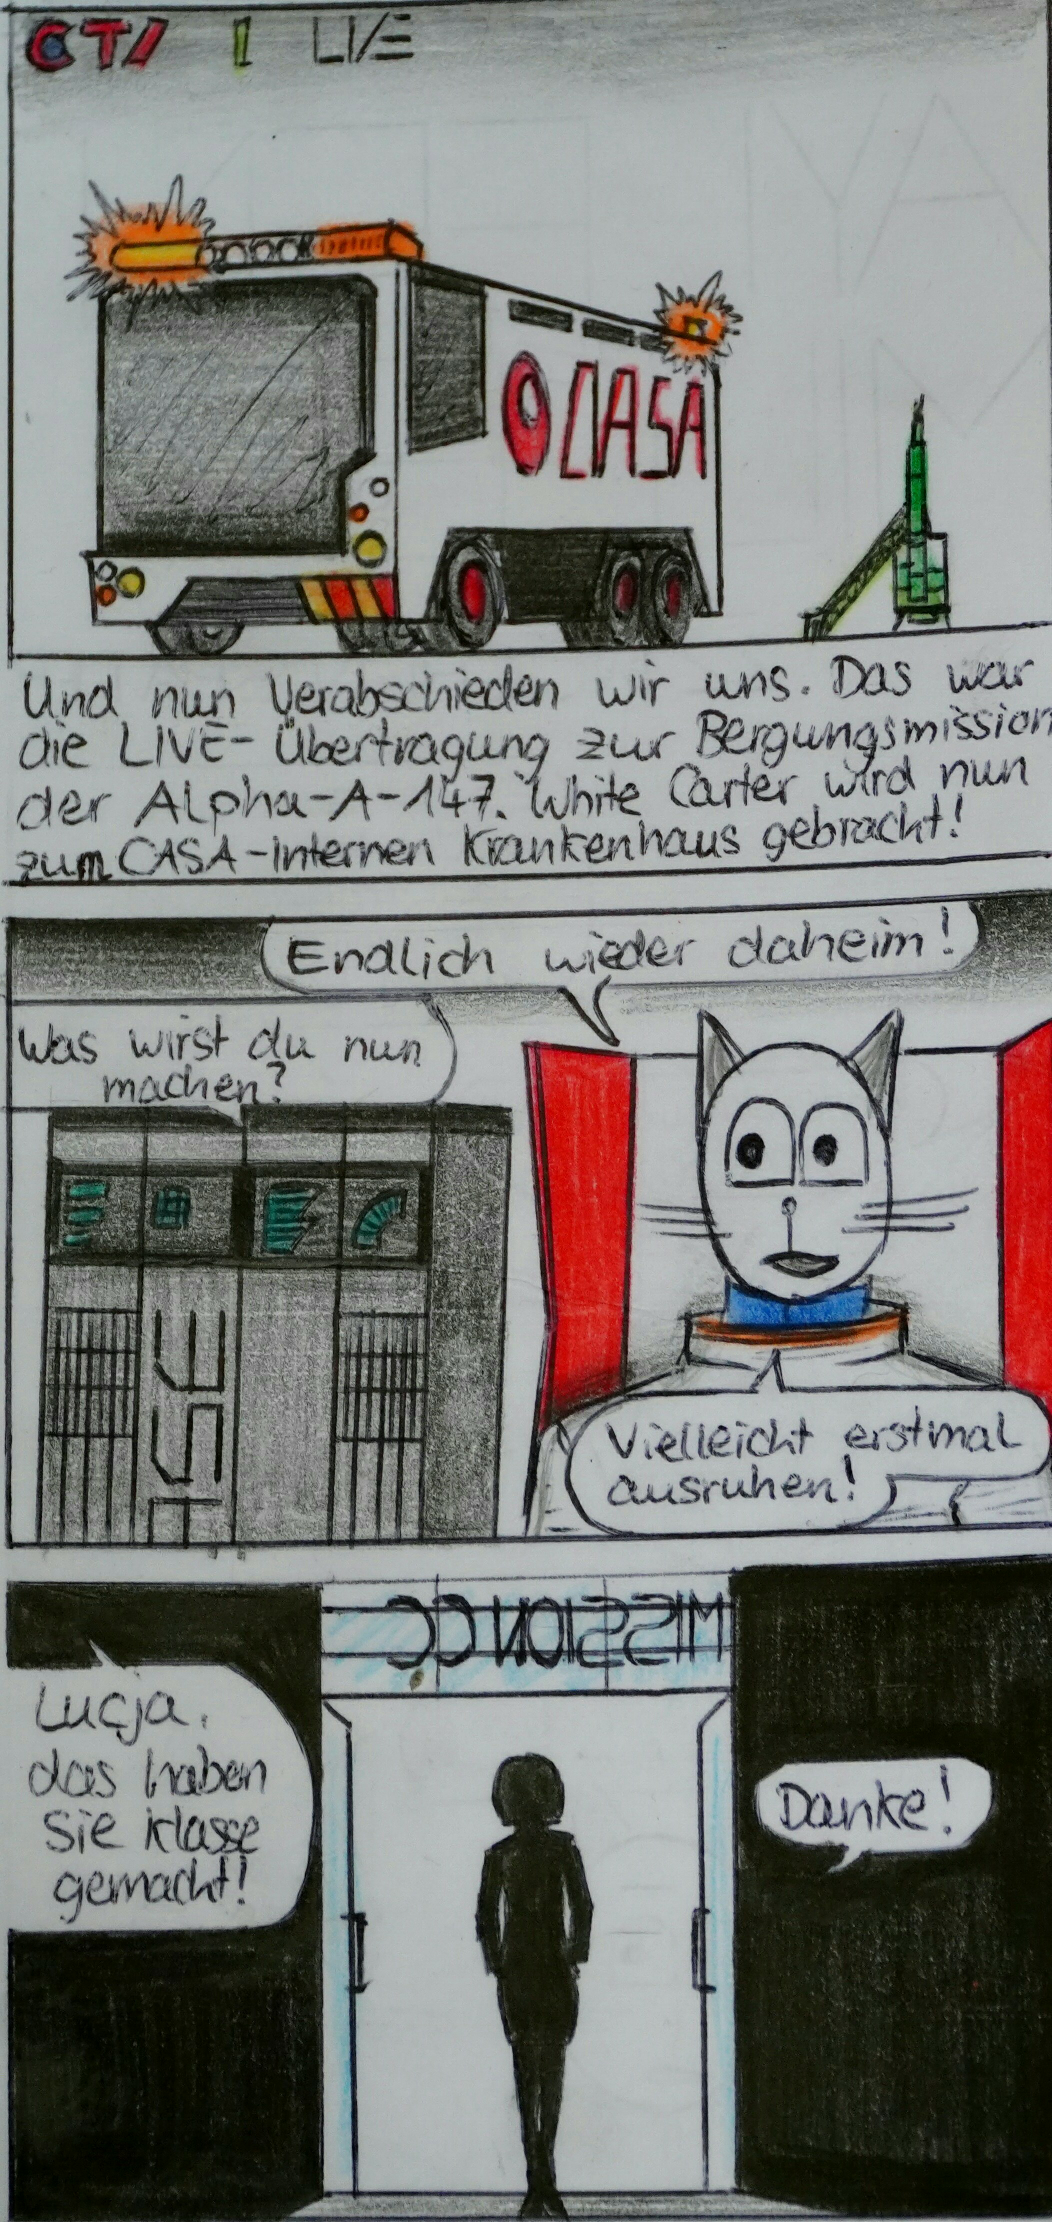 CTV 1 LIVE
CASA
Und nun Verabschieden wir uns. Das war
die LIVE-Übertragung zur Bergungsmission
der Alpha-A-147. White Carter wird nun
zum CASA-Internen Krankenhaus gebracht!
Endlich wieder daheim!
Was wirst du nun
machen?
Vielleicht erstmal
ausruhen!
MISSION CC
Lucja,
das haben
sie klasse
gemacht!
Danke!